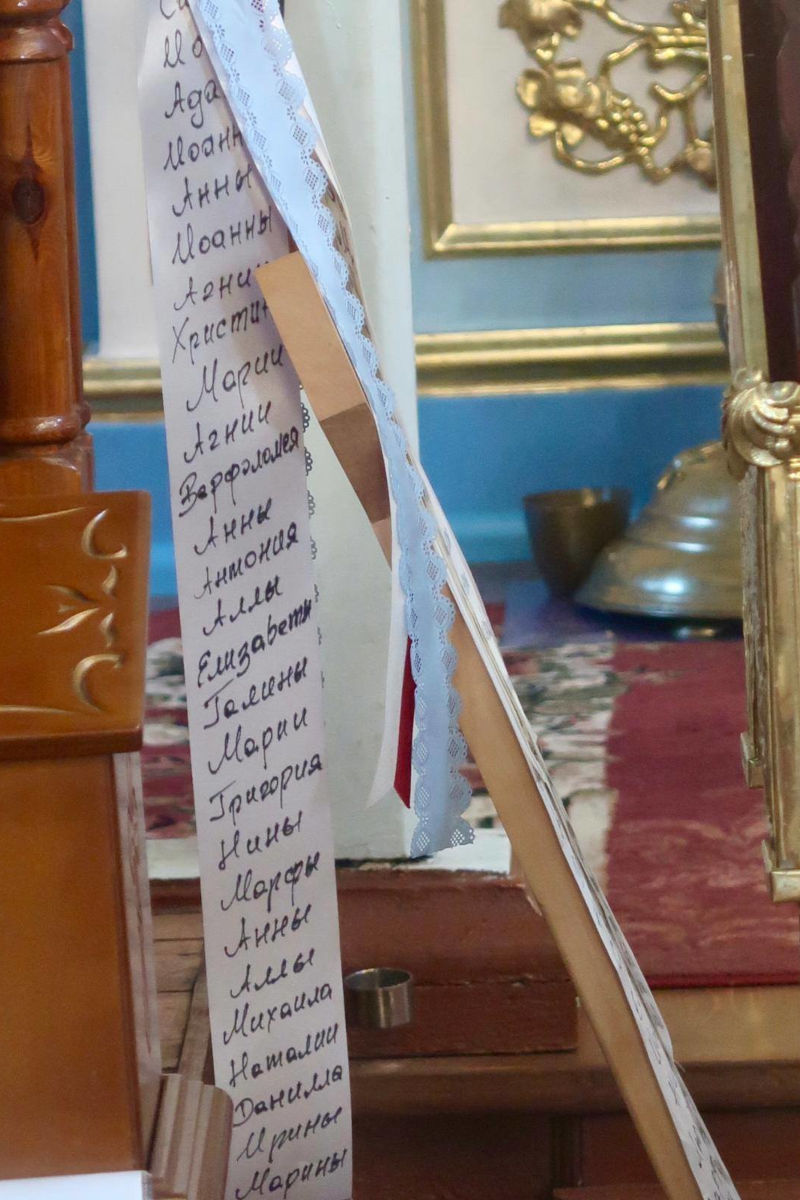 Иоанны
Анны
Иоанны
Агнии
Марии
Агнии
Варфоломея
Анны
Антония
Аллы
Елизаветы
Галины
Марии
Григория
Нины
Марфы
Анны
Аллы
Михаила
Наталии
Данилла
Ирины
Марины